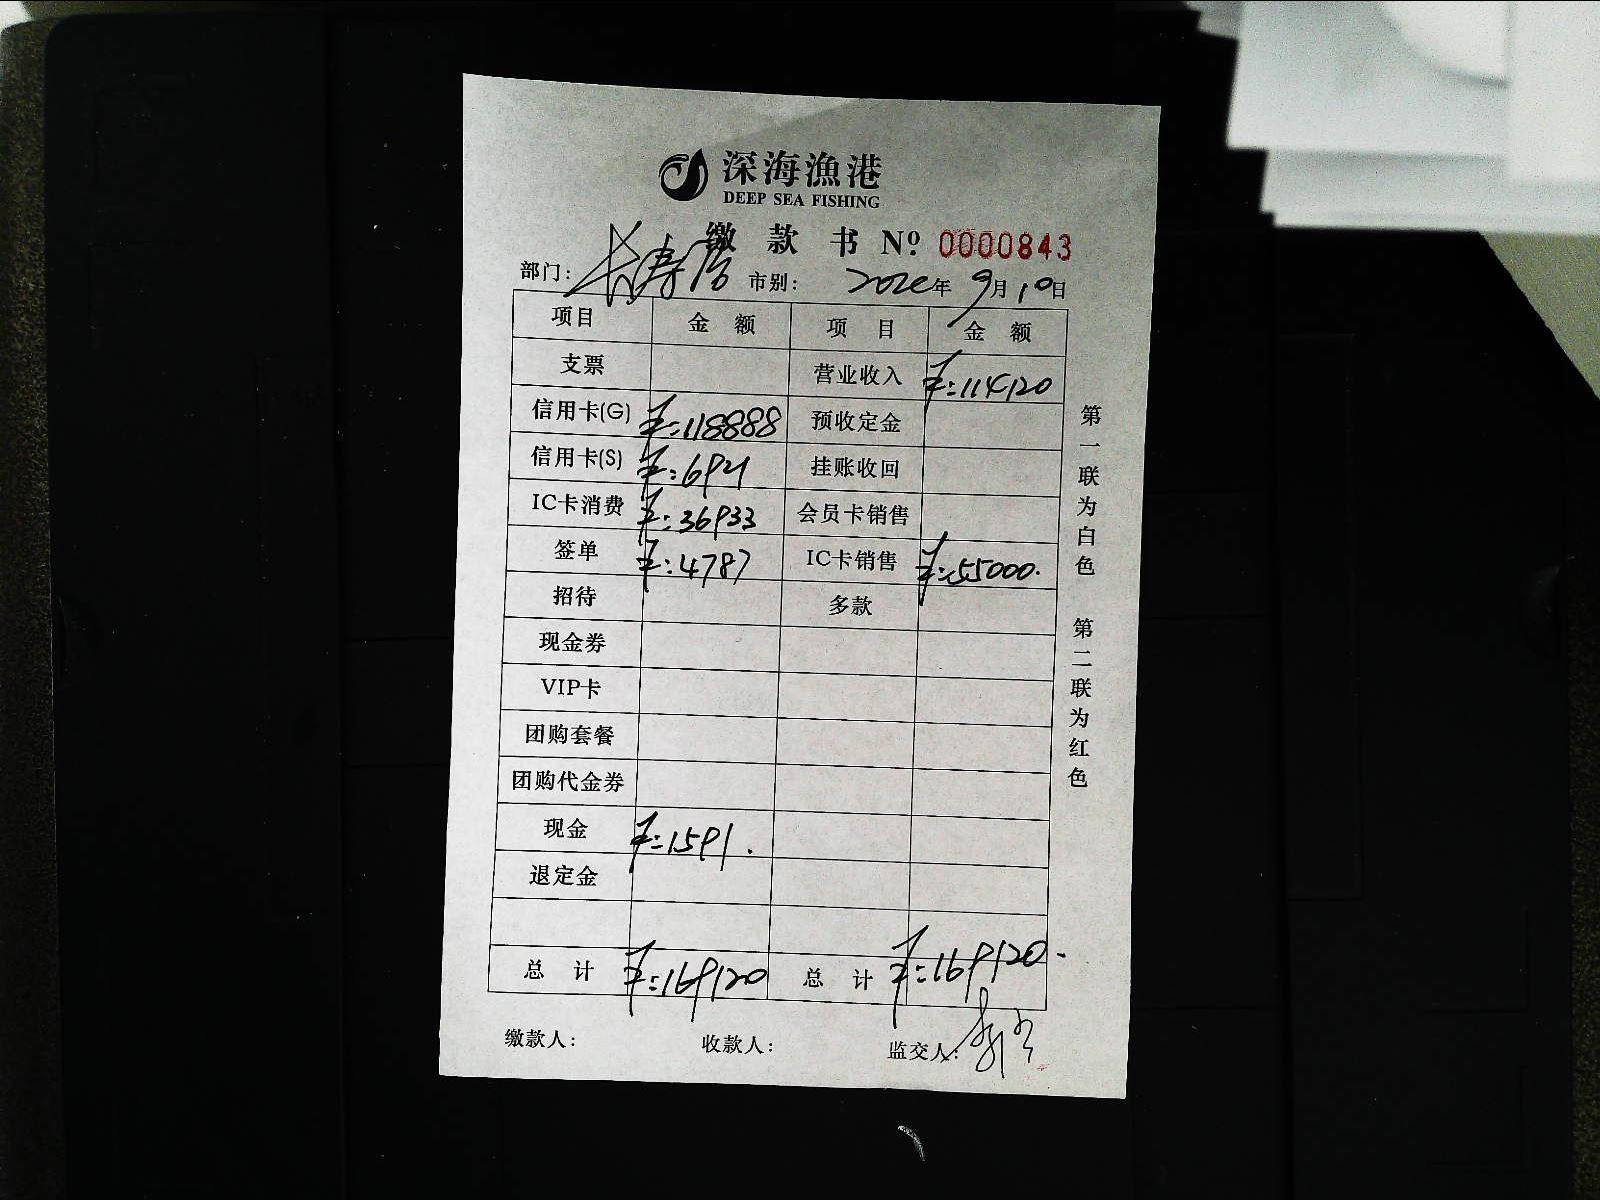 深海漁港
DEEP SEA FISHING
缴款书 Nº 0000843
部门： 市别： 2020年9月10日
项目 金额 项目 金额
支票 营业收入 ¥:114120
信用卡(G) ¥:118888 预收定金
信用卡(S) ¥:6921 挂账收回
IC卡消费 ¥:36933 会员卡销售
签单 ¥:4787 IC卡销售 ¥:55000.
招待 多款
现金券
VIP卡
团购套餐
团购代金券
现金 ¥:1591.
退定金
总计 ¥:169120 总计 ¥:169120.
缴款人： 收款人： 监交人：
第一联为白色 第二联为红色